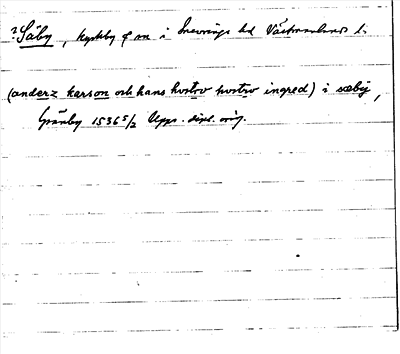 ? Säby, kyrkby o sn i Snevringe hd Västmanlands l.
(anderz karson och hans hostro hostro ingred) i sæby,
Gränby 1536 5/2 Upps. dipl. orig.